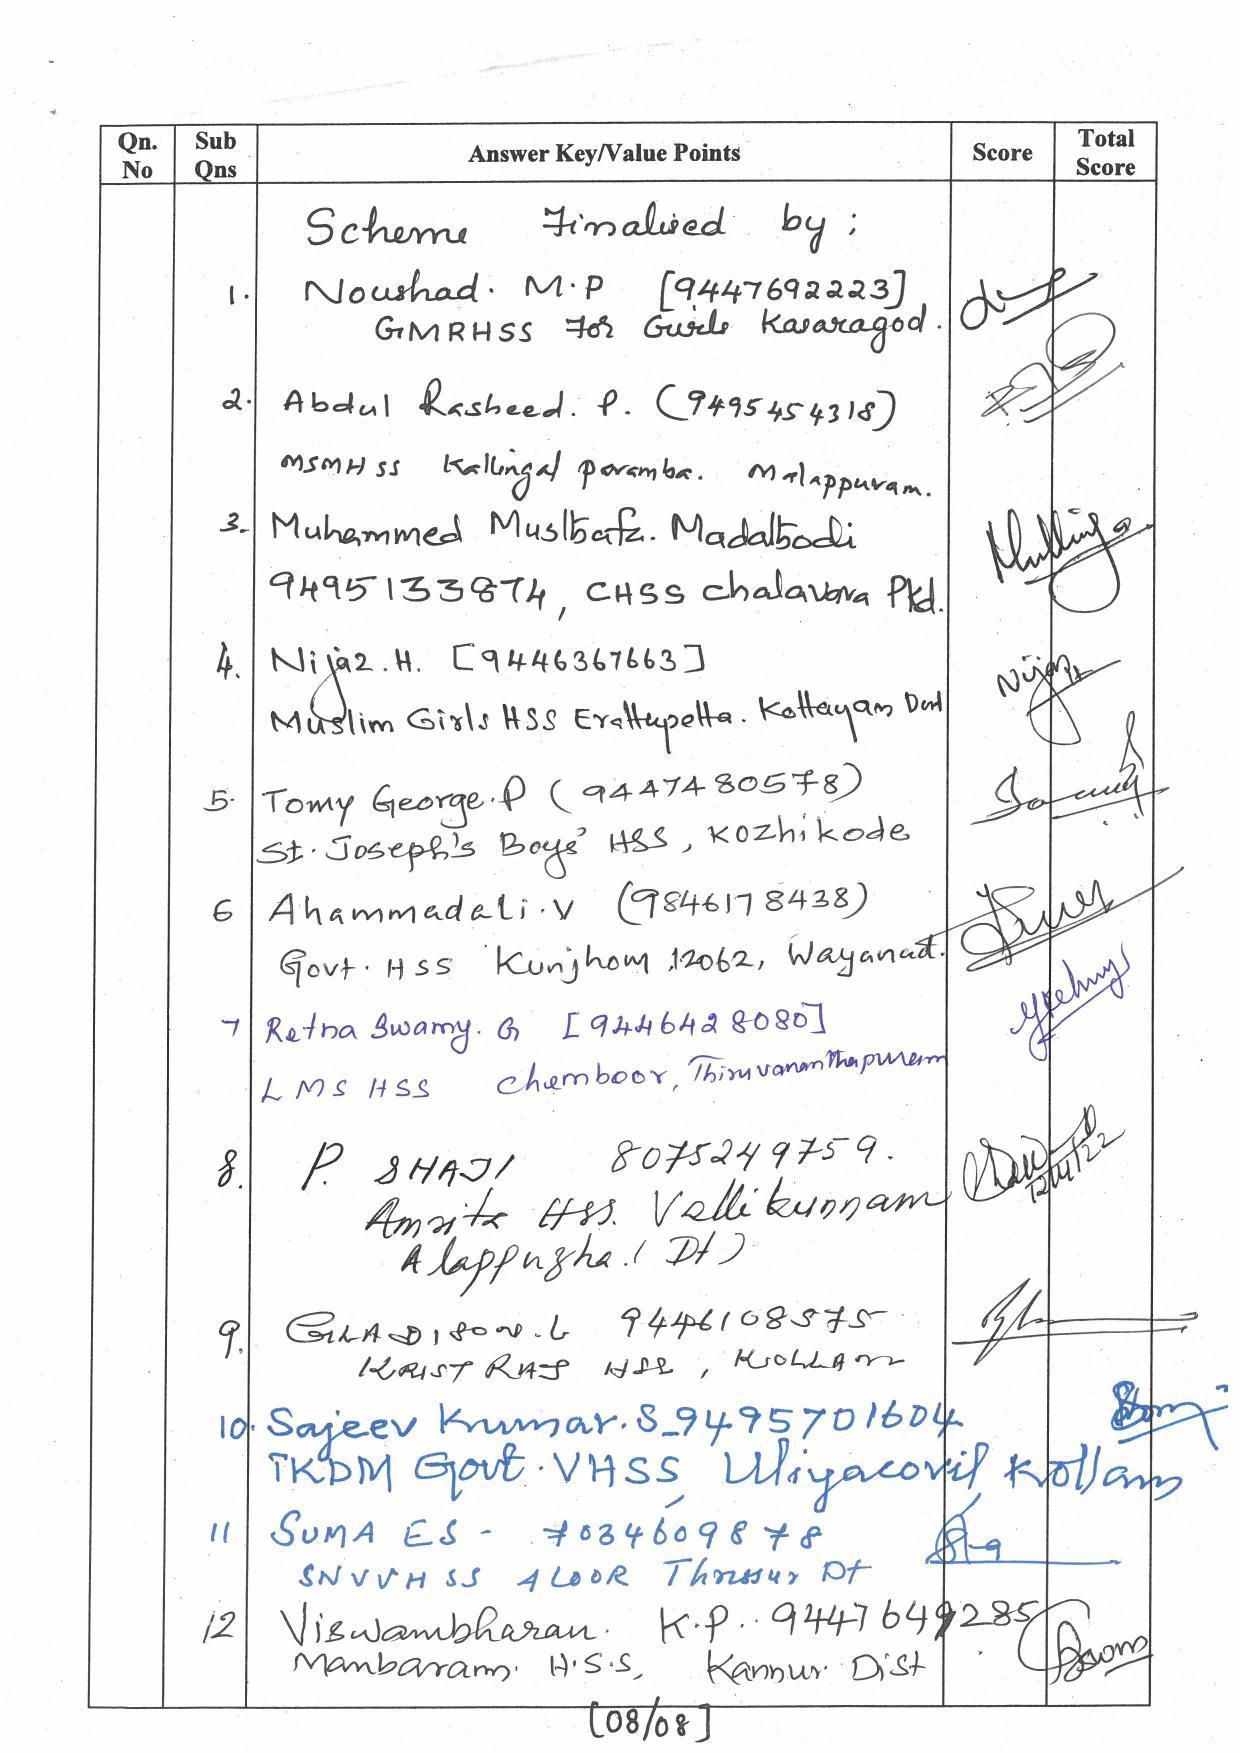 Qn. No
Sub Qns
Answer Key/Value Points
Score
Total Score
Scheme Finalised by :
1. Noushad. M.P [9447692223]
GMRHSS For Girls Kasaragod.
2. Abdul Rasheed. P. (9495454318)
MSMHSS Kallingal paramba. Malappuram.
3. Muhammed Musthafa. Madathodi
9495133874, CHSS Chalavara Pkd.
4. Nijaz.H. [9446367663]
Muslim Girls HSS Erattupetta. Kottayam
5. Tomy George.P (9447480578)
St. Joseph's Boys' HSS, Kozhikode
6 Ahammadali.V (9846178438)
Govt. HSS Kunjhom 12062, Wayanad.
7 Retna Swamy. G [9446428080]
LMS HSS Chemboor, Thiruvananthapuram
8. P. SHAJI 8075249759.
Amrita HSS. Vallikunnam
Alappuzha. (Dt)
12/4/22
9. GLADISON.L 9446108575
KRIST RAJ HSS, KOLLAM
10. Sajeev Kumar.S_9495701604
TKDM Govt. VHSS, Uliyacovil, Kollam
11 SUMA ES - 7034609878
SNVVHSS ALOOR Thrissur Dt
12 Viswambharan. K.P.. 9447649285
Manbaram. H.S.S, Kannur Dist
[08/08]